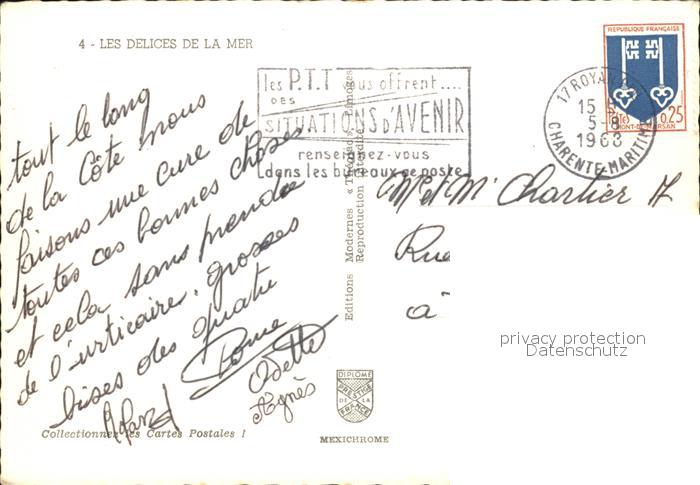 4 - LES DELICES DE LA MER
tout le long
de la Côte nous
faisons une cure de
toutes ces bonnes choses
et cela sans prendre
de l'urticaire, grosses
bises des quatre
Odette
Agnès
Collectionnez les Cartes Postales !
Editions Modernes « Théojac », Limoges
Reproduction Interdite
DIPLOME
PRESTIGE
DE LA
FRANCE
MEXICHROME
les P.T.T vous offrent....
DES
SITUATIONS D'AVENIR
renseignez-vous
dans les bureaux de poste
17 ROYAN
15 H
5-8
1968
CHARENTE-MARITIME
REPUBLIQUE FRANÇAISE
0,25
MONT-DE-MARSAN
Mme et Mr Chartier H
Rue
à
privacy protection
Datenschutz